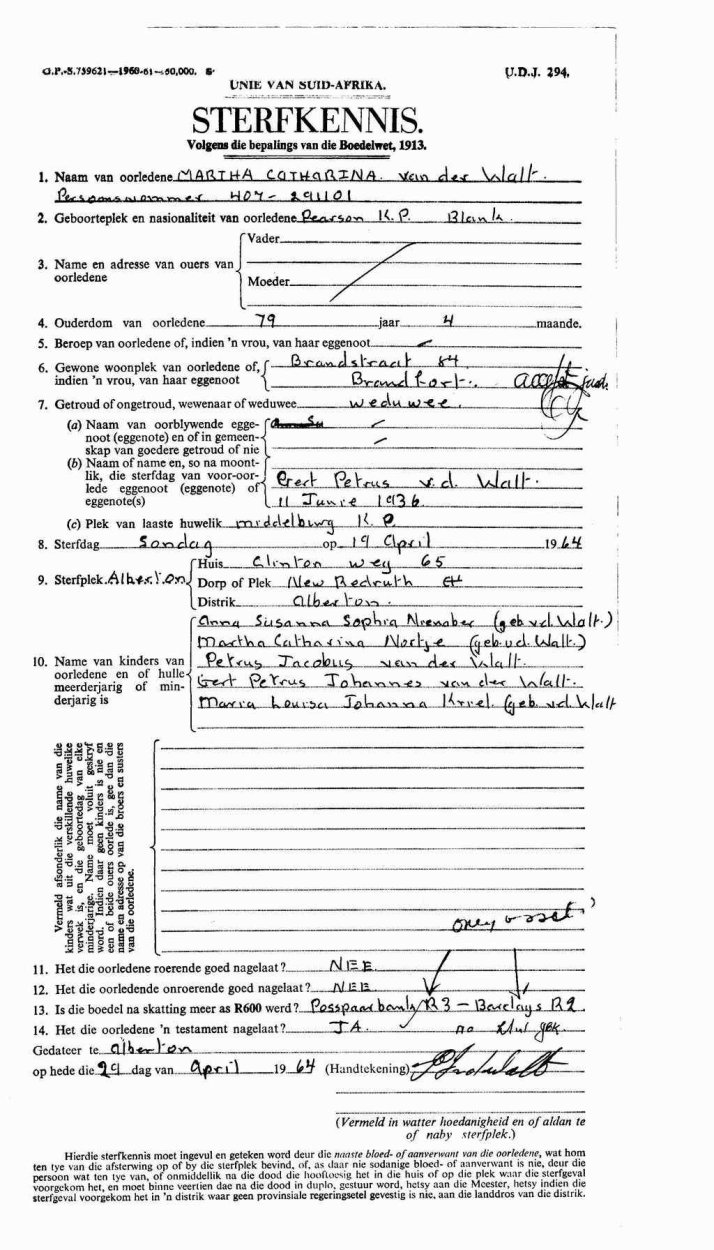 G.P.-S.739621—1960-61—50,000. S
U.D.J. 294.
UNIE VAN SUID-AFRIKA.
STERFKENNIS.
Volgens die bepalings van die Boedelwet, 1913.
1. Naam van oorledene MARTHA CATHARINA van der Walt.
Persoonsnommer 407-291101
2. Geboorteplek en nasionaliteit van oorledene Pearson K.P. Blank.
3. Name en adresse van ouers van oorledene
Vader
Moeder
4. Ouderdom van oorledene 79 jaar 4 maande.
5. Beroep van oorledene of, indien 'n vrou, van haar eggenoot
6. Gewone woonplek van oorledene of, indien 'n vrou, van haar eggenoot
Brandstraat 84
Brandfort.
7. Getroud of ongetroud, wewenaar of weduwee weduwee.
(a) Naam van oorblywende eggenoot (eggenote) en of in gemeenskap van goedere getroud of nie
(b) Naam of name en, so na moontlik, die sterfdag van voor-oorlede eggenoot (eggenote) of eggenote(s)
Gert Petrus v.d. Walt.
11 Junie 1936
(c) Plek van laaste huwelik middelburg K.P
8. Sterfdag Sondag op 19 April 1964
9. Sterfplek Alberton
Huis Clinton weg 65
Dorp of Plek New Redruth
Distrik Alberton.
10. Name van kinders van oorledene en of hulle meerderjarig of minderjarig is
Anna Susanna Sophia Nienaber (geb v.d. Walt.)
Martha Catharina Nortje (geb. v.d. Walt.)
Petrus Jacobus van der Walt.
Gert Petrus Johannes van der Walt.
Maria Louisa Johanna Kriel. (geb. v.d. Walt
Vermeld afsonderlik die name van die kinders wat uit die verskillende huwelike verwek is, en die geboortedag van elke minderjarige. Name moet voluit geskryf word. Indien daar geen kinders is nie en een of beide ouers oorlede is, gee dan die name en adresse op van die broers en susters van die oorledene.
only asset
11. Het die oorledene roerende goed nagelaat? NEE
12. Het die oorledende onroerende goed nagelaat? NEE
13. Is die boedel na skatting meer as R600 werd? Posspaarbank R3 – Barclays R2.
14. Het die oorledene 'n testament nagelaat? JA.
Gedateer te Alberton
op hede die 29 dag van April 1964 (Handtekening)
(Vermeld in watter hoedanigheid en of aldan te
of naby sterfplek.)
Hierdie sterfkennis moet ingevul en geteken word deur die naaste bloed- of aanverwant van die oorledene, wat hom
ten tye van die afsterwing op of by die sterfplek bevind, of, as daar nie sodanige bloed- of aanverwant is nie, deur die
persoon wat ten tye van, of onmiddellik na die dood die hooftoesig het in die huis of op die plek waar die sterfgeval
voorgekom het, en moet binne veertien dae na die dood in duplo, gestuur word, hetsy aan die Meester, hetsy indien die
sterfgeval voorgekom het in 'n distrik waar geen provinsiale regeringsetel gevestig is nie, aan die landdros van die distrik.